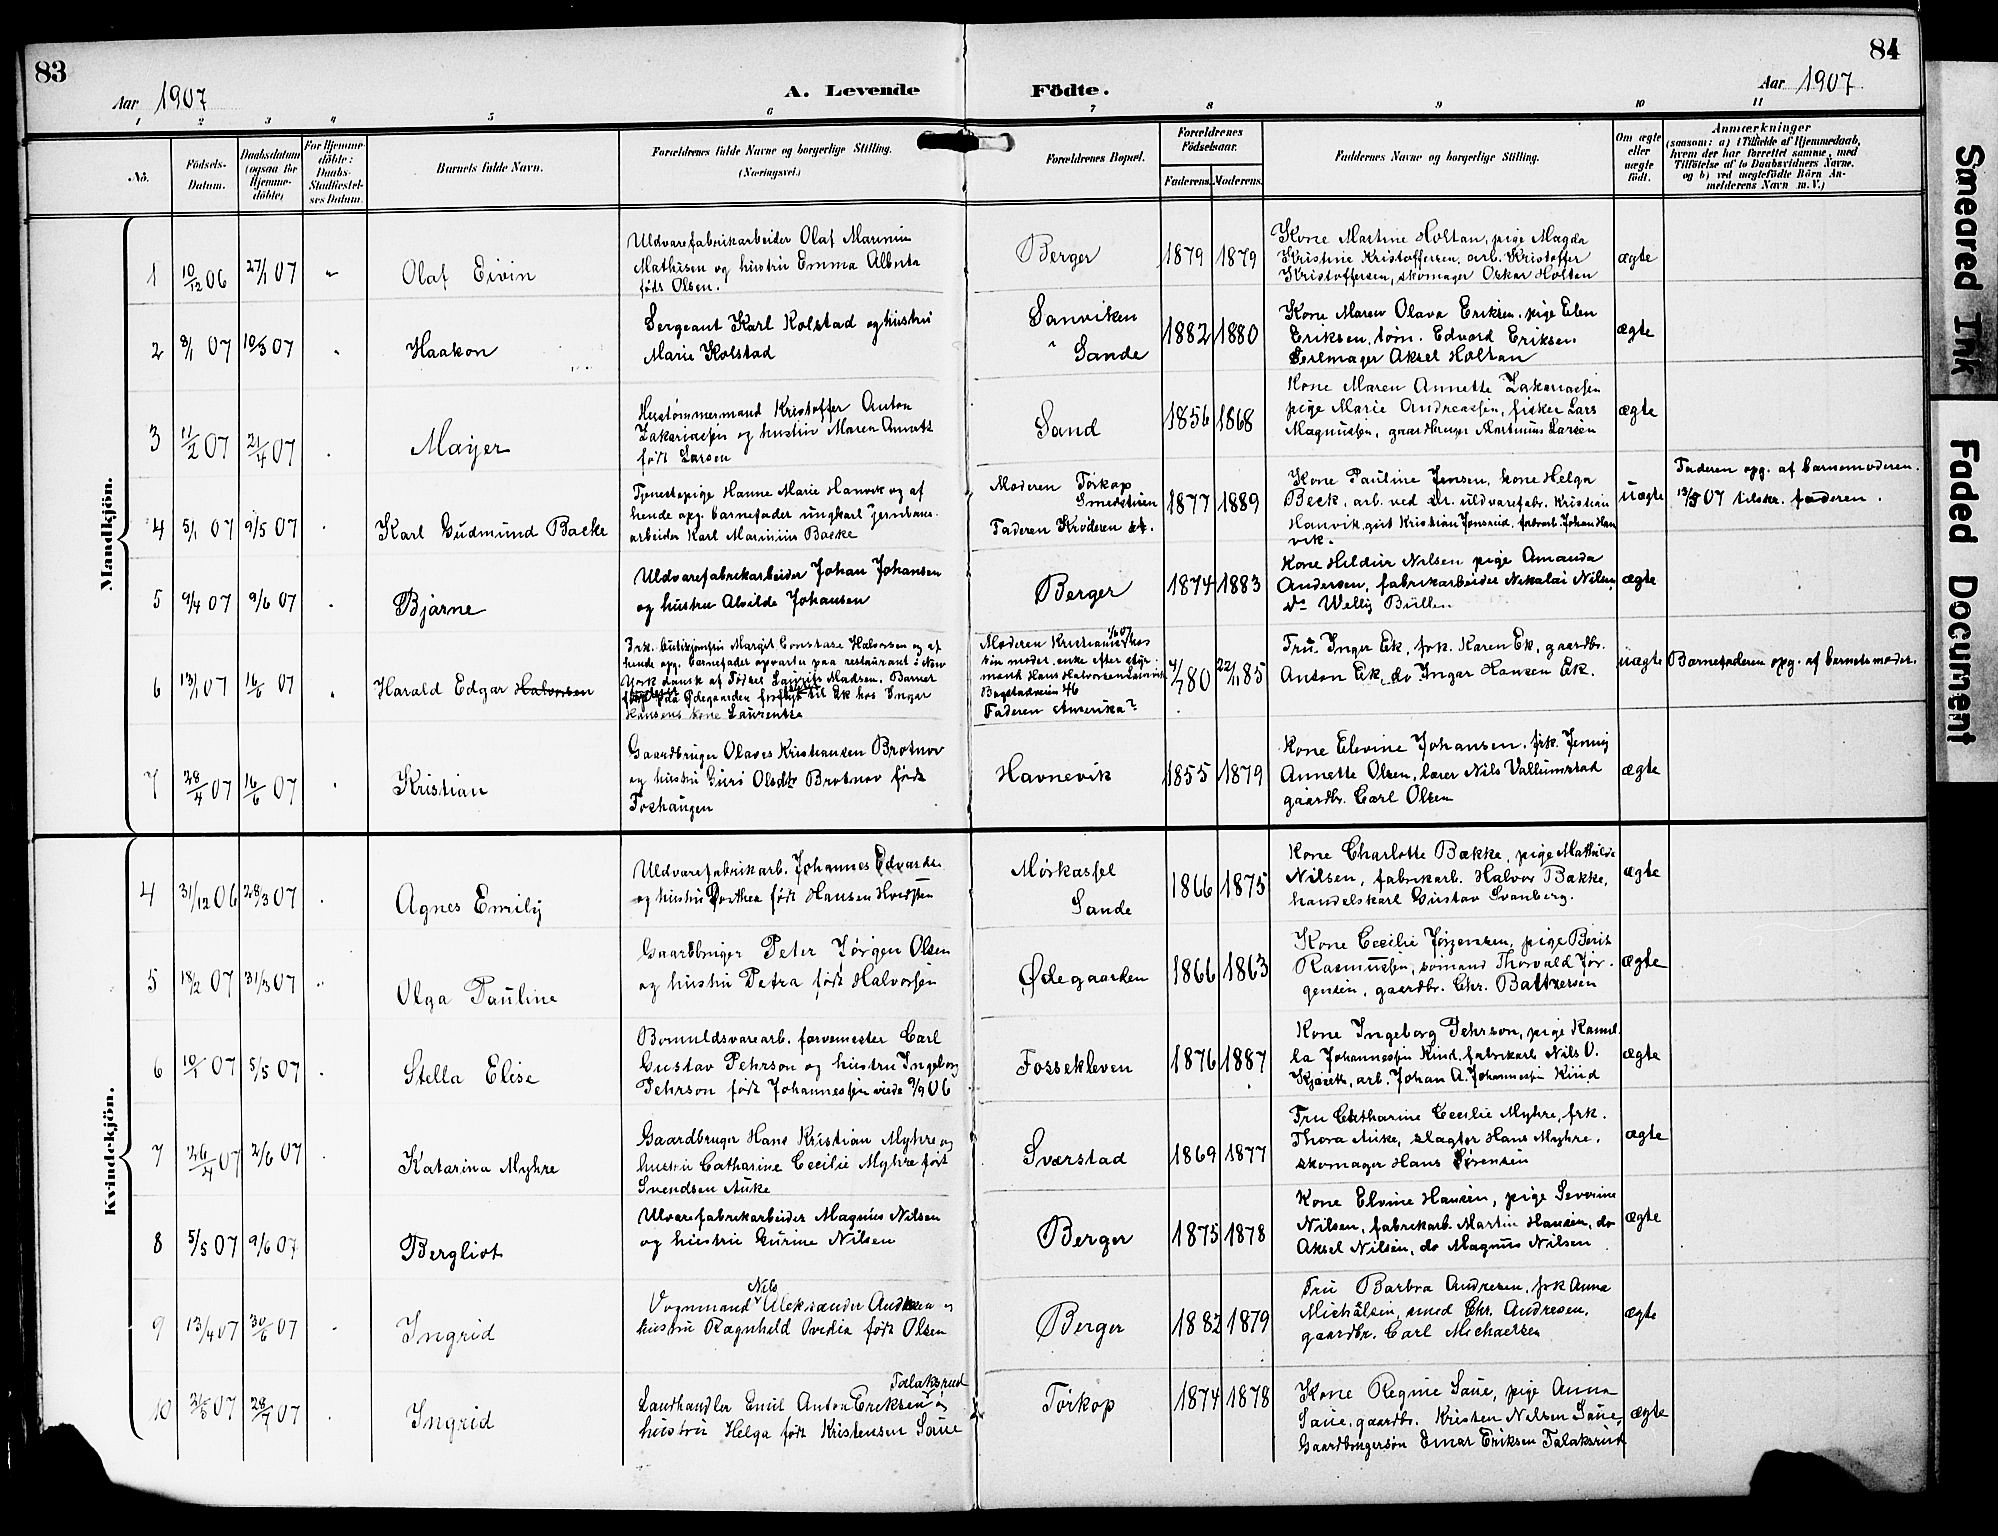 83
84
Aar 1907
A. Levende
Födte.
Aar 1907.
1 2 3 4 5 6 7 8 9 10 11
No.
Födsels-
Datum.
Daabsdatum
(ogsaa for
Hjemme-
döbte)
For Hjemme-
döbte:
Daabs-
Stadfæstel-
ses Datum.
Barnets fulde Navn.
Forældrenes fulde Navne og borgerlige Stilling.
(Næringsvei.)
Forældrenes Bopæl.
Forældrenes
Födselsaar.
Faderens.
Moderens.
Faddernes Navne og borgerlige Stilling.
Om ægte
eller
uægte
födt.
Anmærkninger
(saasom: a) i Tilfælde af Hjemmedaab,
hvem der har forrettet samme, med
Tilföielse af to Daabsvidners Navne.
og b) ved uægtefödte Börn An-
melderens Navn m. V.)
Mandkjön.
1
10/12 06
27/1 07
Olaf Eivin
Uldvarefabrikarbeider Olaf Marinius
Mathisen og hustru Emma Alberta
født Olsen.
Berger
1879
1879
Kone Martine Holtan, pige Magda
Kristine Kristoffersen, arb. Kristoffer
Kristoffersen, skomager Oskar Holtan
ægte
2
8/1 07
10/3 07
Haakon
Sergeant Karl Kolstad og hustru
Marie Kolstad
Sanviken
Sande
1882
1880
Kone Maren Olava Eriksen, pige Elen
Eriksen, tøm. Edvard Eriksen
Seilmager Aksel Holtan
ægte
3
11/2 07
21/4 07
Mayer
Hustømmermand Kristoffer Anton
Zakariassen og hustru Maren Annette
født Larsen
Sand
1856
1868
Kone Maren Annette Zakariassen
pige Marie Andreassen, fisker Lars
Magnussen, gaardbruger Martinius Larsen
ægte
4
5/1 07
9/5 07
Karl Gudmund Backe
Tjenestepige Hanne Marie Hanvik og af
hende opg. barnefader ungkarl Jernbane-
arbeider Karl Marinius Backe
Moderen Tørkop
Smedstuen
Faderen Krøderen st.
1877
1889
Kone Pauline Jensen, kone Helga
Beck, arb. ved uldvarefabr. Kristian
Hanvik, Kristian Jonsrud, Johan Han
vik.
uægte
Faderen opg. af barnemoderen.
13/5 07 tilskr. faderen.
5
9/4 07
9/6 07
Bjarne
Uldvarefabrikarbeider Johan Johansen
og hustru Alvilde Johansen
Berger
1874
1883
Kone Hildur Nilsen pige Amanda
Andersen, fabrikarbeider Nikolai Nilsen,
do Welly Büllen
ægte
6
13/1 07
16/6 07
Harald Edgar Halvorsen
Frk. butikjomfru Margit Constase Halvorsen og af
hende opg. barnefader opvarter paa restaurant i New
York dansk af Fødsel Laurits Madsen. Barnet
Ødegaarden til Ek hos Ingar
Hansens kone Laurentse
Moderen Kristiania hos
sin moder, enke efter styr-
mand Hans Halvorsen
Bogstadveien 46
Faderen Amerika?
4/7 80
22/11 85
Fru Inger Ek, frk. Karen Ek, gaardbr.
Anton Ek, do Ingar Hansen Ek.
uægte
Barnefaderen opg. af barnetsmoder.
7
28/4 07
16/6 07
Kristian
Gaardbruger Olaves Kristiansen Brotnov
og hustru Guro Olsdtr Brotnov født
Foshaugen
Havnevik
1855
1879
Kone Elevine Johansen, frk. Jenny
Annette Olsen, lærer Nils Vallumstad
gaardbr. Carl Olsen
ægte
Kvindekjön.
4
31/12 06
28/3 07
Agnes Emily
Uldvarefabrikarb. Johannes Edvards
og hustru Dorthea født Hansen
Mørkassel
Sande
1866
1875
Kone Charlotte Bakke, pige Mathilde
Nilsen, fabrikarb. Halvor Bakke,
handelskarl Gustav Svanberg.
ægte
5
18/2 07
31/3 07
Olga Pauline
Gaardbruger Peter Jørgen Olsen
og hustru Petra født Halvorsen
Ødegaarden
1866
1863
Kone Cecilie Jørgensen, pige Berit
Rasmussen, sømand Thorvald Jør-
gensen, gaardbr. Chr. Battnersen
ægte
6
10/1 07
5/5 07
Stella Elise
Bomuldsvarearb. farvemester Carl
Gustav Pehrson og hustru Ingeborg
Pehrson født Johannessen viede 9/9 06
Fossekleven
1876
1887
Kone Ingeborg Pehrson, pige Kamil-
la Johannessen Kind, fabrikarb. Nils O.
arb. Johan A. Johannessen Kind
ægte
7
26/4 07
2/6 07
Katarina Myhre
Gaardbruger Hans Kristian Myhre og
hustru Catharine Cecilie Myhre født
Svendsen Auke
Sværstad
1869
1877
Fru Catharine Cecilie Myhre, frk.
Thora Auke, slagter Hans Myhre,
skomager Hans Sørensen
ægte
8
5/5 07
9/6 07
Bergliot
Ulvarefabrikarbeider Magnus Nilsen
og hustru Gurine Nilsen
Berger
1875
1878
Kone Elvine Hansen, pige Severine
Nilsen, fabrikarb. Martin Hansen, do
Aksel Nilsen, do Magnus Nilsen
ægte
9
13/4 07
30/6 07
Ingrid
Nils
Vognmand Aleksander Andresen og
hustru Ragnhild Ovedia født Olsen
Berger
1882
1879
Fru Barbra Andresen, frk Anna
Michalsen, smed Chr. Andresen,
gaardbr. Carl Michaelsen
ægte
10
21/5 07
28/7 07
Ingrid
Talaksrud
Landhandler Emil Anton Eriksen og
hustru Helga født Kristensen Saue
Tørkop
1874
1878
Kone Regine Saue, pige Anna
Saue, gaardbr. Kristen Nilsen Saue,
Gaardbrugersøn Einar Eriksen Talaksrud
ægte
Smeared Ink
Faded Document